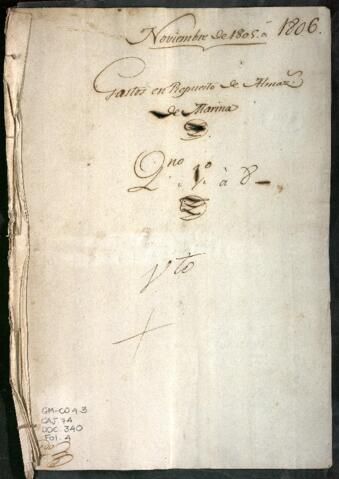 Noviembre de 1805 à 1806.
Gastos en Repuesto de Almaz.
de Marina
Qno 1º à 8
Vto
GM-CO 4.3
CAJ. 74
DOC. 340
FOL. 4